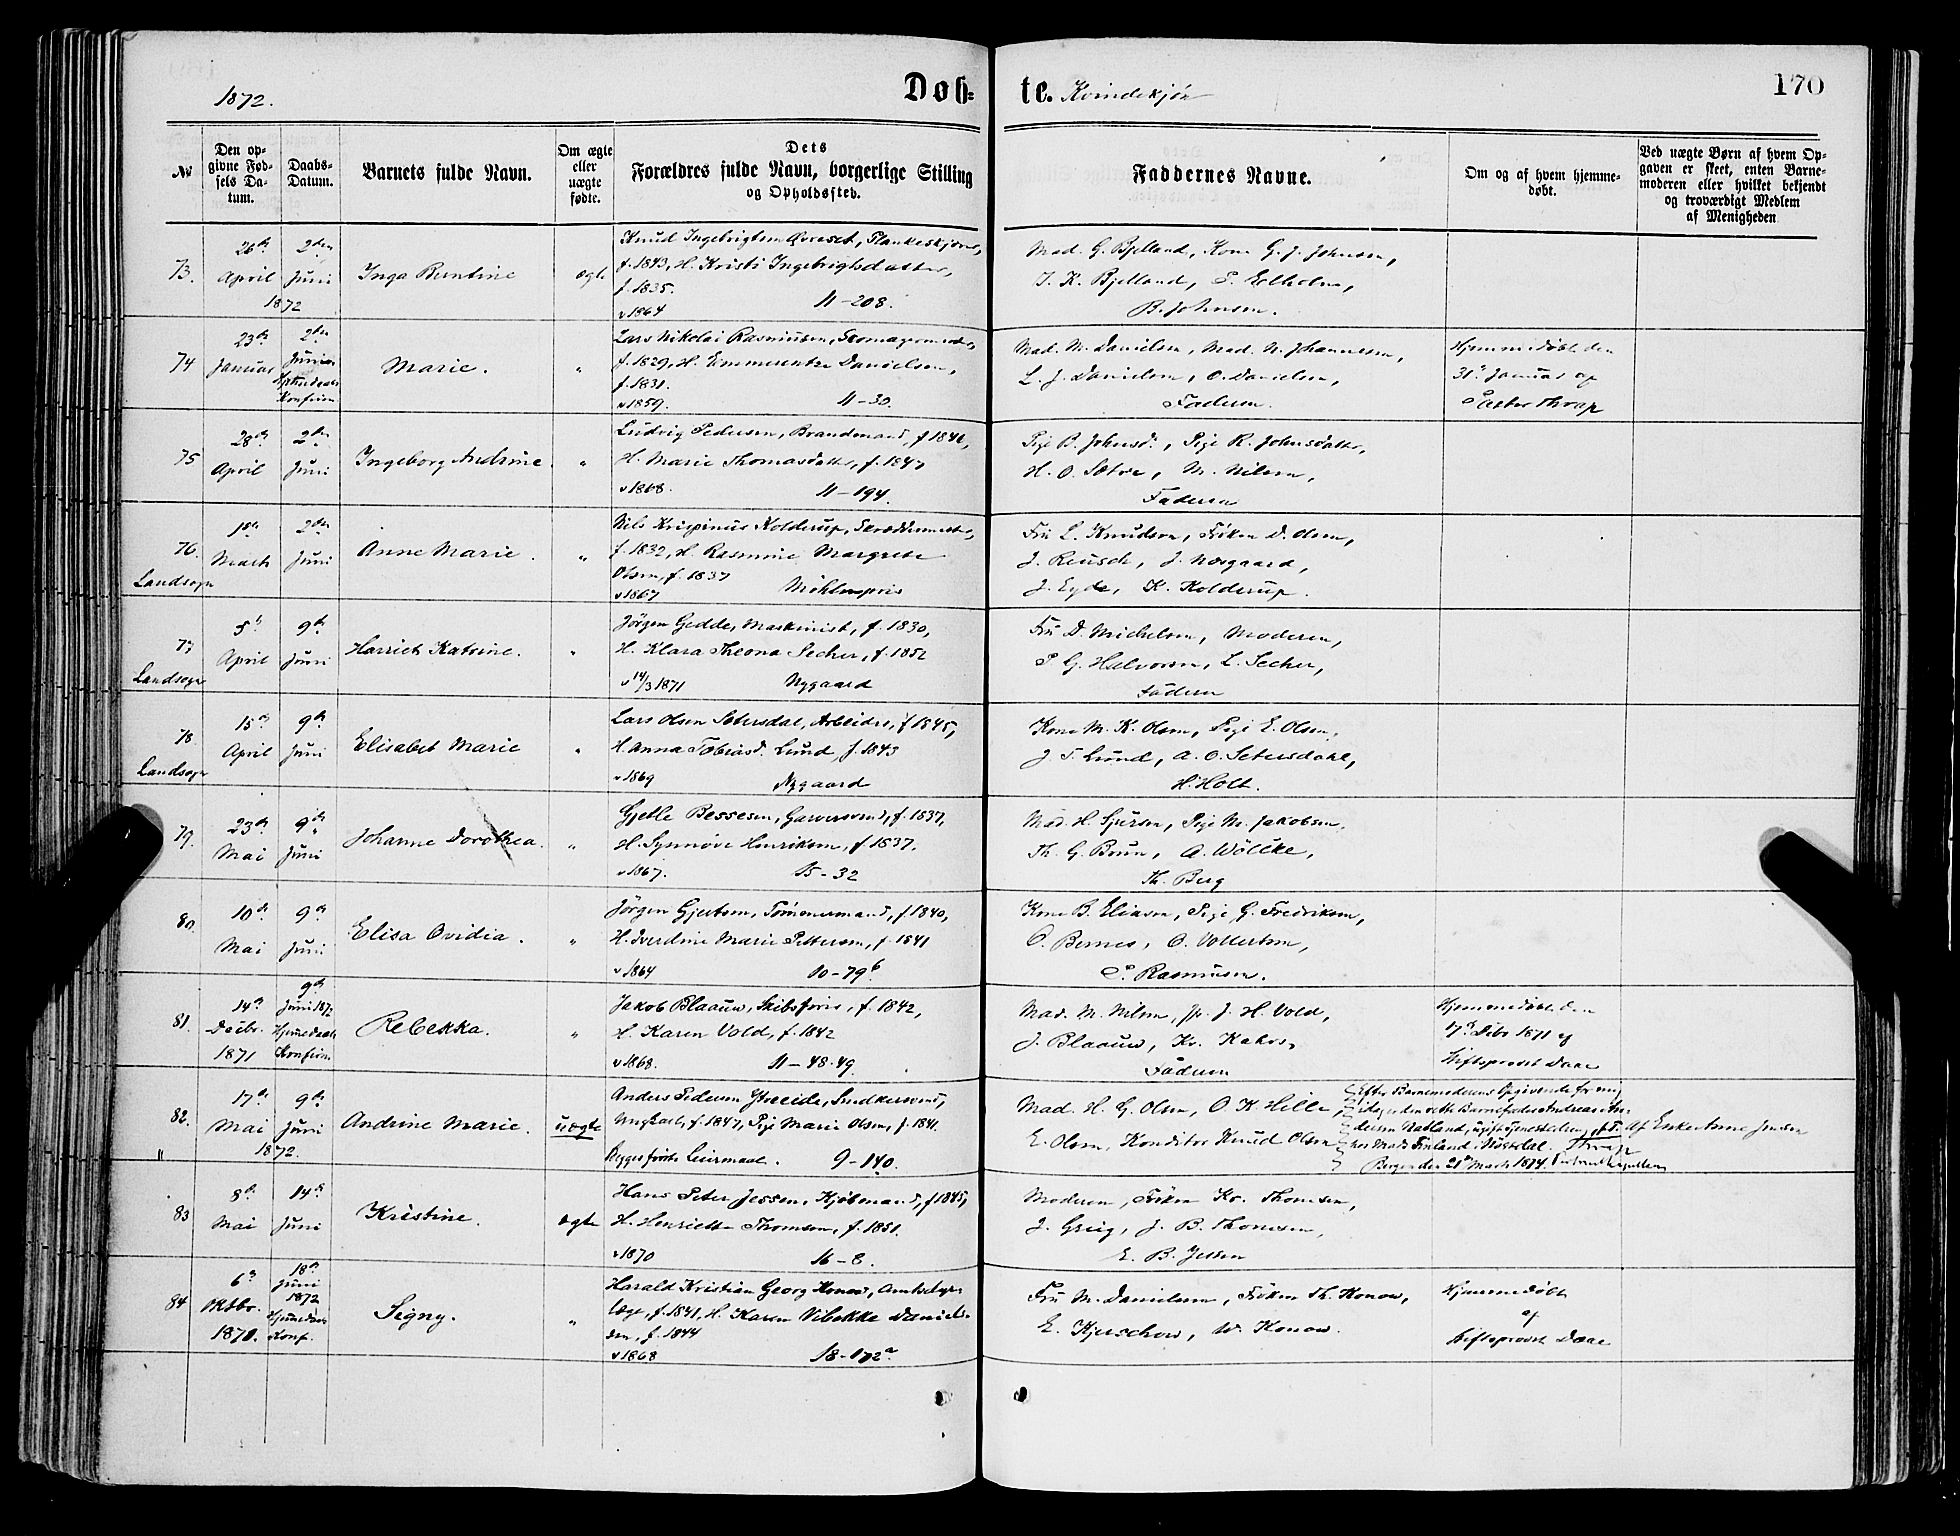 1872.
Døb=
te. Kvindekjön
170
№
Den op-
givne Fød-
sels Da-
tum.
Daabs-
Datum.
Barnets fulde Navn.
Om ægte
eller
uægte
fødte.
Dets
Forældres fulde Navn, borgerlige Stilling
og Opholdssted.
Faddernes Navne.
Om og af hvem hjemme-
døbt.
Ved uægte Børn af hvem Op-
gaven er skeet, enten Barne-
moderen eller hvilket bekjendt
og troværdigt Medlem
af Menigheden
73.
26de April
2den Juni
1872
Inga Berntine
ægte
Knud Ingebrigtsen
f. 1843, H. Kristi Ingebrigtsdatter,
f. 1835.
v 1864 11-208.
Mad. G. Bjelland, Kone G. J. Johnsen,
J. K. Bjelland, P. Elholm,
B. Johnsen.
74
23de Januar
2den Juni
Hjemmedaab Konfirm
Marie.
"
Lars Nikolai Rasmussen, Skomagermester,
f. 1829, H. Emmerentze Danielsen,
f. 1831.
v 1859. 11-30.
Mad. M. Danielsen, Mad. N. Johannesen,
L. J. Danielsen, O. Danielsen,
Faderen.
Hjemmedøbt den
31. Januar af
Pastor Thrap
75
28de April
2den Juni
Ingeborg Andrine
"
Ludvig Pedersen, Brandmand, f 1846,
H. Marie Thomasdatter, f. 1847
v 1868. 11-194.
Pige B. Johnsd., Pige R. Johnsdatter,
H. O. Sætre, M. Nilsen,
Faderen
76.
Landsogn
1ste Marts
2den Juni
Anne Marie.
"
Nils Krispinus Kolderup, Skræddermester,
f. 1832, H. Rasmine Margrete
Olsen, f. 1837
v 1867 Möhlenpris
Fru L. Knudsen, Fröken D. Olsen,
J. Reusch, J. Næsgaard,
J. Eyde, K. Kolderup.
77
Landsogn
5te April
9de Juni
Harriet Katrine.
"
Jörgen Gedde, Maskinist, f. 1830,
H. Klara Theona Secher, f. 1852
v 14/3 1871 Nygaard
Fru D. Michelsen, Moderen,
P. G. Halvorsen, L. Secher,
Faderen
78
Landsogn
15de April
9de Juni
Elisabet Marie
"
Lars Olsen Setersdal, Arbeider, f 1845,
H. Anna Tobiasd. Lund, f. 1843
v 1869 Nygaard
Kone M. K. Olsen, Pige E. Olsen,
J. T. Lund, A. O. Setersdahl,
H. Holt.
79.
23de Mai
9de Juni
Johanne Dorothea.
"
Gjetle Bessesen, Garversvend, f. 1837,
H. Synnöve Henriksen, f 1837.
v 1867. 15-32
Mad. H. Sjursen, Pige M. Jakobsen,
Th. G. Brun, A. Wölcke,
Th. Berg
80.
10de Mai
9de Juni
Elisa Ovidia.
"
Jörgen Gjertsen, Tömmermand, f 1840,
H. Iverdine Marie Pettersen, f. 1841
v 1864 10-79b
Kone B. Eliasen, Pige G. Fredriksen,
O. Bernes, O. Vollertsen,
P. Rasmusen.
81.
14de Decbr. 1871
9de Juni 1872
Hjemmedaab Konfirm
Rebekka.
"
Jakob Blaauw, Skibsfører, f. 1842,
H. Karen Vold, f. 1842
v 1868. 11-48.49.
Mad. M. Nilsen, H. Vold,
J. Blaauw, Kr. Kahrs,
Faderen
Hjemmedöbt den
17. Decbr 1871 af
Stiftsprovst Daae
82.
"
17de Mai
9de Juni
1872.
Andrine Marie.
uægte
Anders Pedersen Snedkersvend,
Ungkarl, f. 1847, Pige Marie Olsen, f. 1841.
Begges første Leiermaal. 9-140.
Mad. H. G. Olsen, O. K. Hille,
E. Olsen, Konditor Knud Olsen
Efter Barnemoderens Opgivende for mig
idag er den rette Barnefader Andreas
Natland, ugift
hos Mads Finland i Nøstdal. Thrap
Bergen den 21de Marts 1874.
Af Enke Anne Jensen
83
8de Mai
14de Juni
Kristine.
ægte
Hans Peter Jessen, Kjöbmand, f 1845,
H. Henriette Thomsen, f. 1851.
v 1870 16-8.
Moderen, Fröken Kr. Thomsen,
J. Grieg, J. B. Thomsen,
E. B. Jessen
84
6te Oktbr. 1871.
18de Juni 1872
Hjemmedaab Konf.
Signy.
"
Harald Kristian Georg Konow,
læge, f. 1841, H. Karen Vibekke Daniels-
sen, f. 1844
v 1868 18-172a
Fru M. Danielsen, Fröken Th. Konow,
E. Kjerschow, W. Konow.
Hjemmedöbt
af
Stiftsprovst Daae